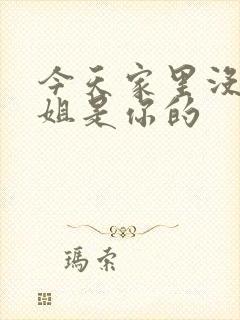 今天家里没
姐是你的
瑪索